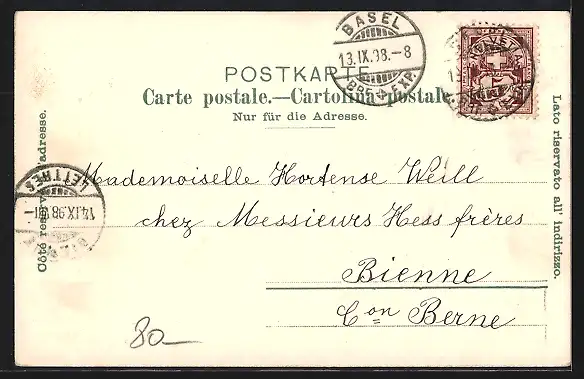 BASEL
13.IX.98.–8
BRF. EXP.
HELVETIA
5
POSTKARTE.
Carte postale.—Cartolina postale.
Nur für die Adresse.
Côté réservé à l'adresse.
Lato riservato all' indirizzo.
LETTRES
14.IX.98.
Mademoiselle Hortense Weill
chez Messieurs Hess frères
Bienne
Con Berne
80—